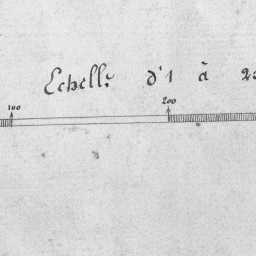 Echelle d'1 à
100 200